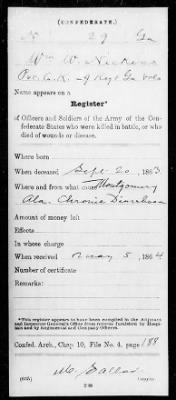 (CONFEDERATE.)
N 29 Ga
Wm W
Pvt Co. K. 29 Regt Ga Vols
Name appears on a
Register*
of Officers and Soldiers of the Army of the Con-
federate States who were killed in battle, or who
died of wounds or disease.
Where born
When deceased Sept 20, 1863
Where and from what cause Montgomery
Ala. Chronic Diarrhoea
Amount of money left
Effects
In whose charge
When received May 5, 1864
Number of certificate
Remarks:
*This register appears to have been compiled in the Adjutant
and Inspector General's Office from several furnished by Hospi-
tal and by Regimental and Company Officers.
Confed. Arch., Chap. 10, File No. 4, page 188
(635)
Copyist.